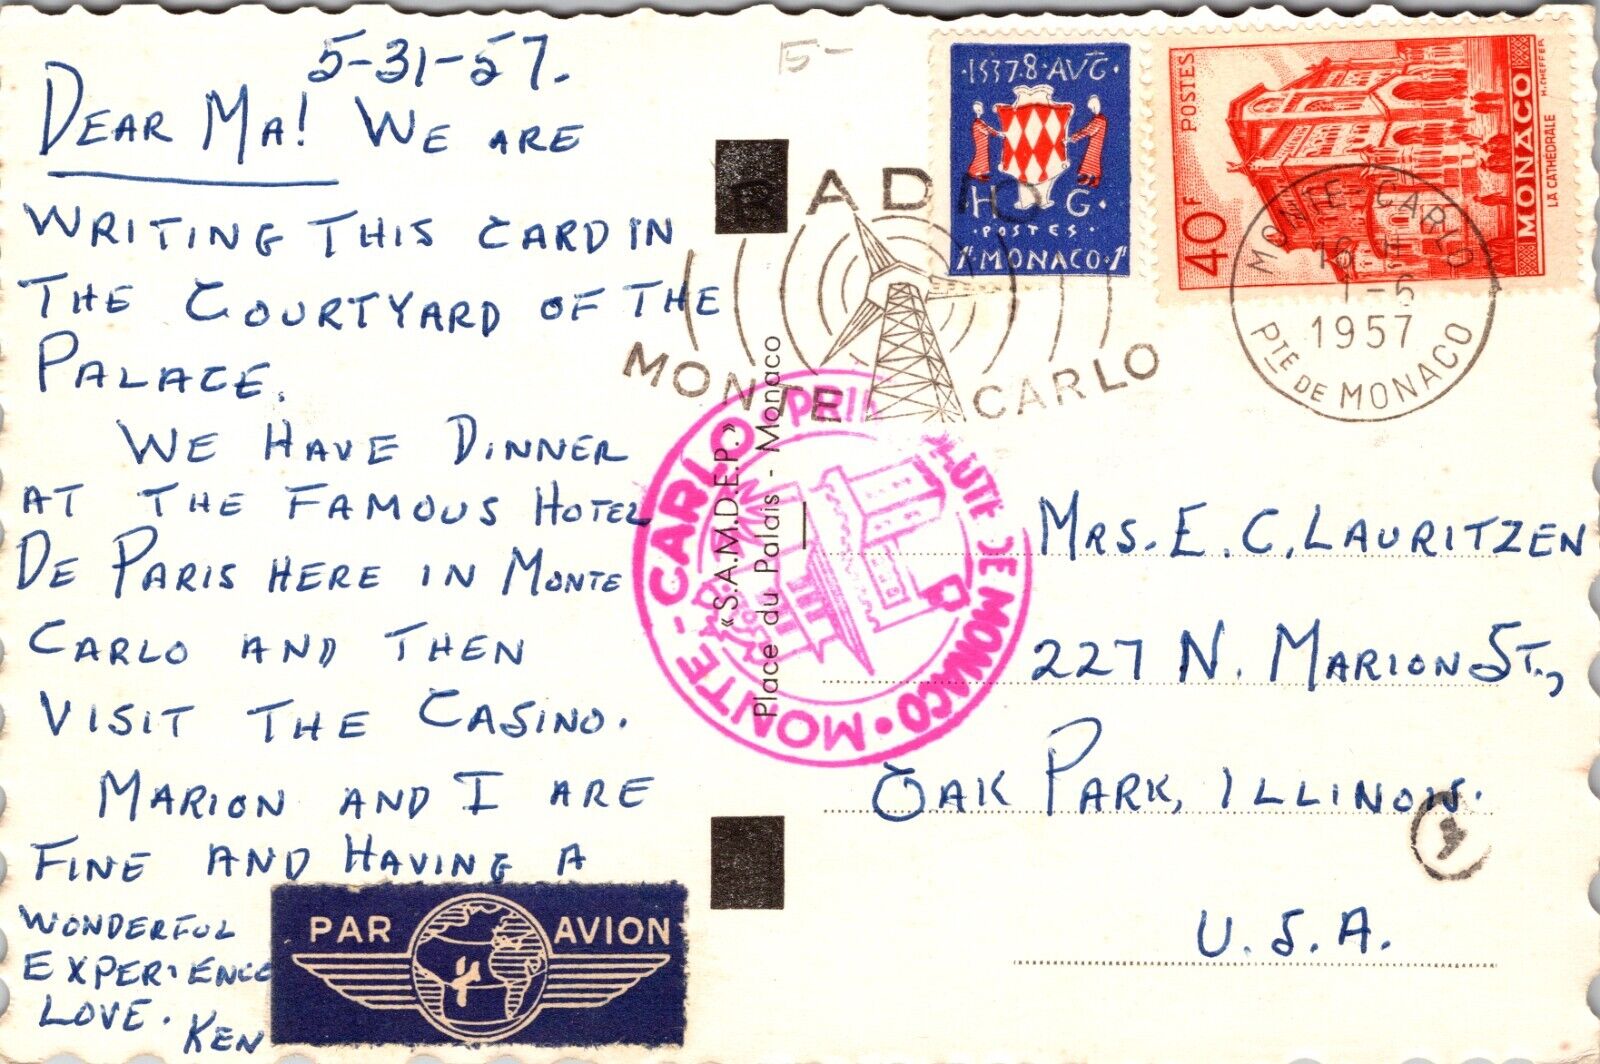 5-31-57.
DEAR MA! WE ARE
WRITING THIS CARD IN
THE COURTYARD OF THE
PALACE.
WE HAVE DINNER
AT THE FAMOUS HOTEL
DE PARIS HERE IN MONTE
CARLO AND THEN
VISIT THE CASINO.
MARION AND I ARE
FINE AND HAVING A
WONDERFUL
EXPERIENCE
LOVE. KEN
PAR AVION
15-
«S.A.M.D.E.P.»
Place du Palais - Monaco
RADIO
MONTE CARLO
MONTE-CARLO • PRI
DE MONACO •
·1537·8·AVG·
H G
·POSTES·
1F·MONACO·1F
POSTES
40F
MONACO
LA CATHEDRALE
H.CHEFFER
MONTE-CARLO
18 H
1-6
1957
PTE DE MONACO
MRS. E. C. LAURITZEN
227 N. MARION ST.,
OAK PARK, ILLINOIS.
U.S.A.